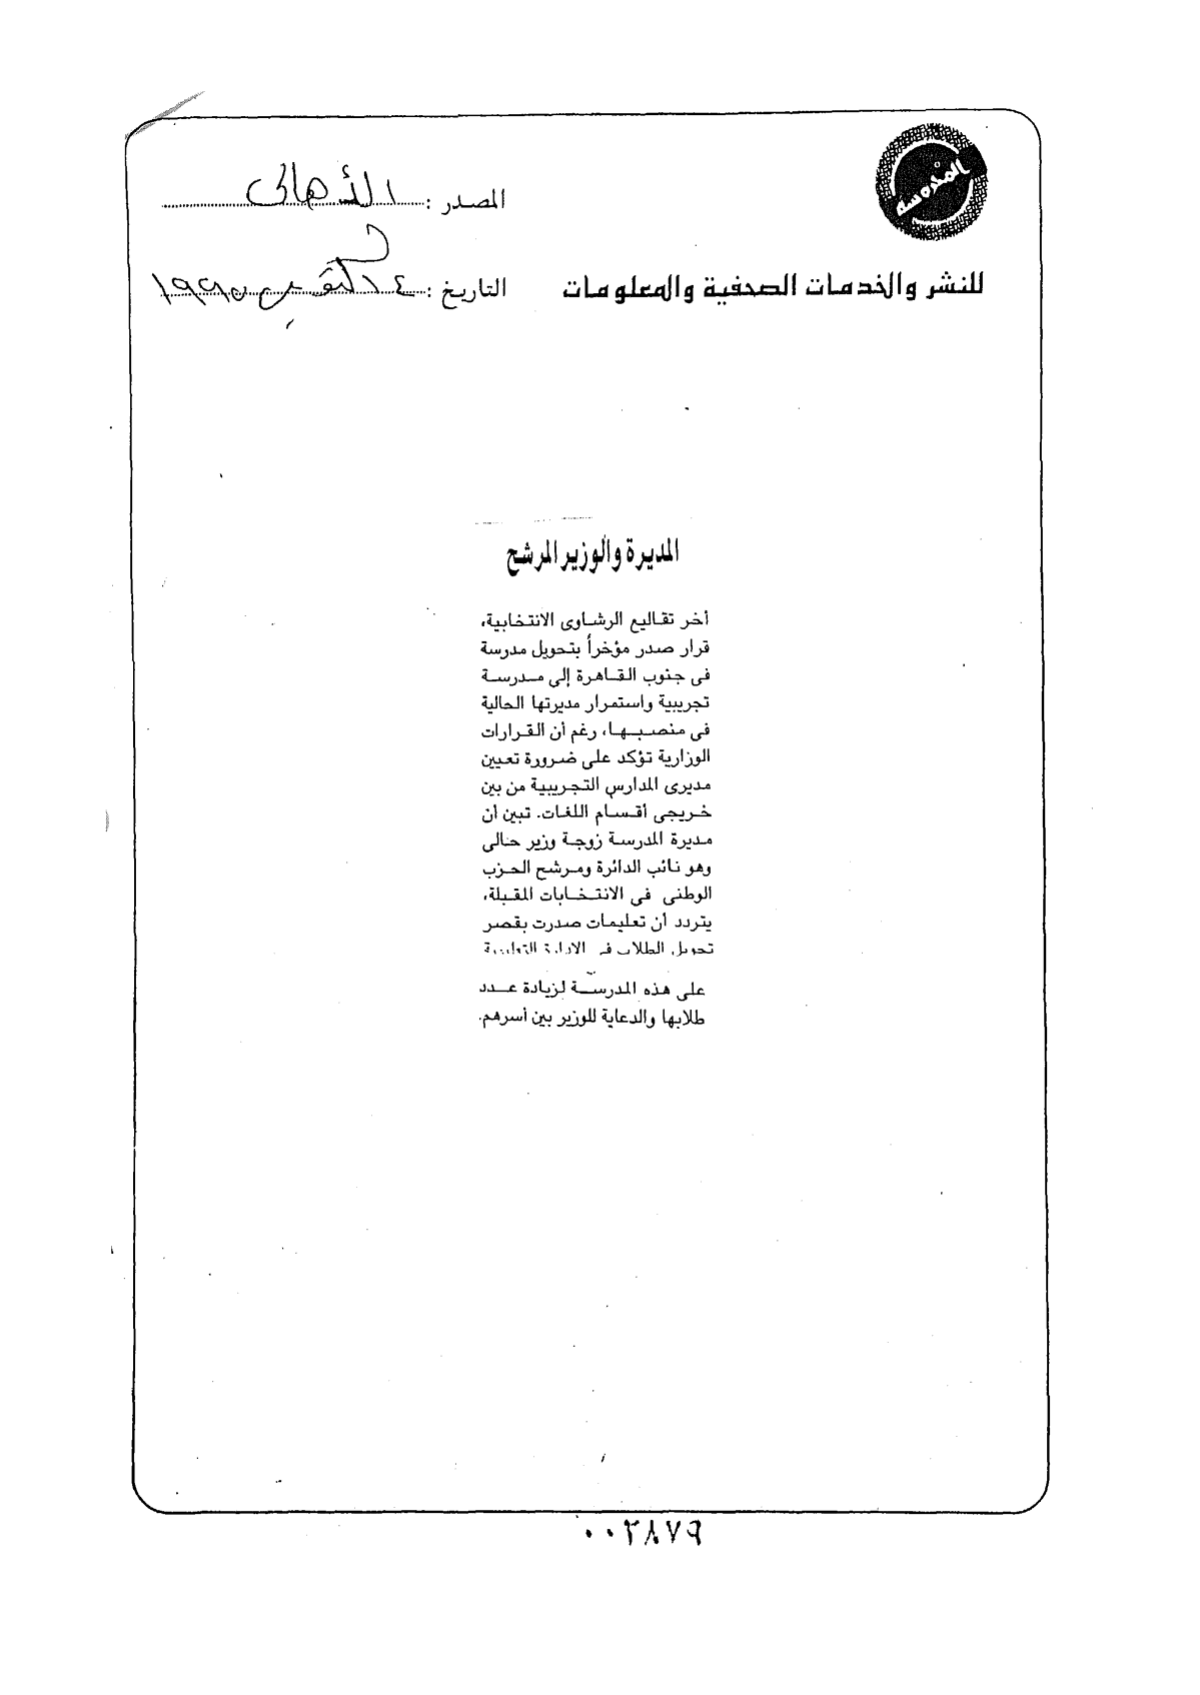 المحروسة
المصدر : الأهالى
للنشر والخدمات الصحفية والمعلومات
التاريخ : ٤ أكتوبر ١٩٩٥
المديرة والوزير المرشح
أخر تقاليع الرشاوى الانتخابية،
قرار صدر مؤخراً بتحويل مدرسة
فى جنوب القاهرة إلى مدرسة
تجريبية واستمرار مديرتها الحالية
فى منصبها، رغم أن القرارات
الوزارية تؤكد على ضرورة تعيين
مديرى المدارس التجريبية من بين
خريجى أقسام اللغات. تبين أن
مديرة المدرسة زوجة وزير حالى
وهو نائب الدائرة ومرشح الحزب
الوطنى فى الانتخابات المقبلة،
يتردد أن تعليمات صدرت بقصر
تحويل الطلاب فى الادارة التعليمية
على هذه المدرسة لزيادة عدد
طلابها والدعاية للوزير بين أسرهم.
٠٠٢٨٧٩